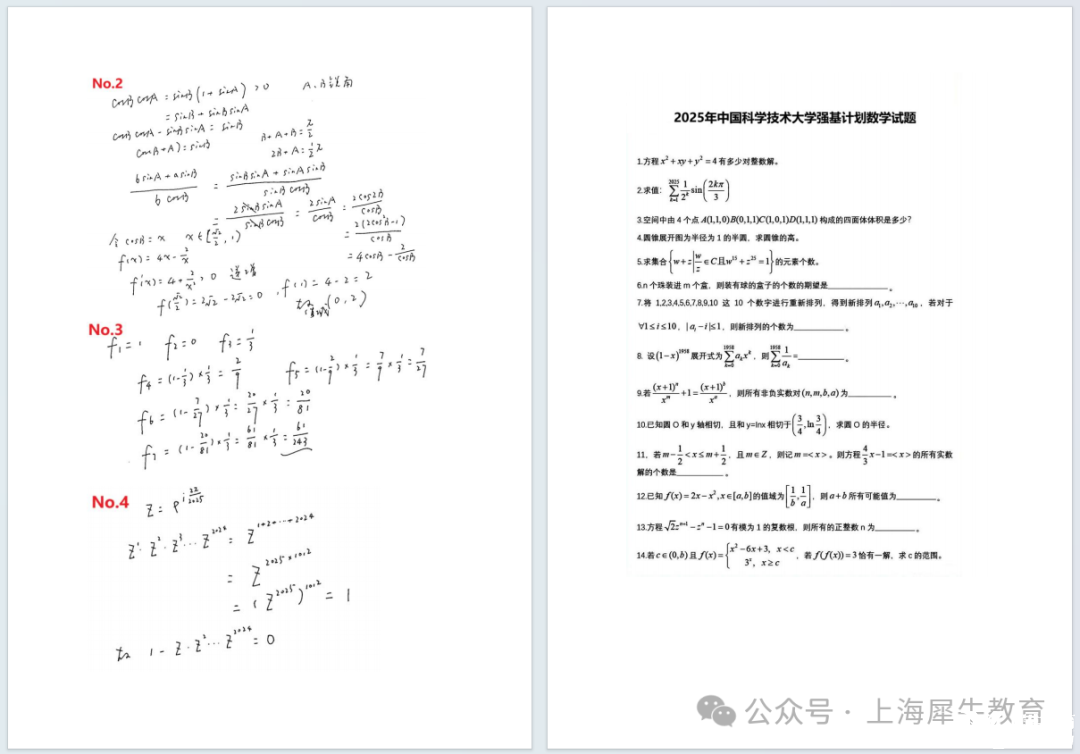 No.2
cosBcosA = sinB(1+sinA) >0 A、B锐角
= sinB+sinBsinA
cosBcosA - sinBsinA = sinB
cos(B+A) = sinB
B+A+B = π/2
2B+A = 1/2 π
(bsinA + asinB)/(b cosB) = (sinBsinA + sinAsinB)/(sinB cosB)
= (2sinBsinA)/(sinBcosB) = 2sinA/cosB = 2cos2B/cosB
= 2(2cos²B-1)/cosB
= 4cosB - 2/cosB
令 cosB = x x∈[√2/2, 1)
f(x) = 4x - 2/x
f'(x) = 4 + 2/x² >0 递增
f(√2/2) = 2√2 - 2√2 = 0, f(1) = 4-2 = 2
故 (0, 2)
No.3
f₁ = 1 f₂ = 0 f₃ = 1/3
f₄ = (1-1/3)×1/3 = 2/9 f₅ = (1-2/9)×1/3 = 7/9×1/3 = 7/27
f₆ = (1-7/27)×1/3 = 20/27×1/3 = 20/81
f₇ = (1-20/81)×1/3 = 61/81×1/3 = 61/243
No.4
Z = e^{i 2π/2025}
Z¹·Z²·Z³…Z²⁰²⁴ = Z^{1+2+…+2024}
= Z^{2025×1012}
= (Z²⁰²⁵)¹⁰¹² = 1
故 1 - Z·Z²…Z²⁰²⁴ = 0
2025年中国科学技术大学强基计划数学试题
1.方程 x²+xy+y²=4 有多少对整数解。
2.求值：∑_{k=1}^{2025} 1/2^k sin(2kπ/3)
3.空间中由 4 个点 A(1,1,0)B(0,1,1)C(1,0,1)D(1,1,1) 构成的四面体体积是多少?
4.圆锥展开图为半径为 1 的半圆，求圆锥的高。
5.求集合{w+z | w/z ∈C且w²⁵+z²⁵=1}的元素个数。
6.n 个珠装进 m 个盒，则装有球的盒子的个数的期望是____________。
7.将 1,2,3,4,5,6,7,8,9,10 这 10 个数字进行重新排列，得到新排列 a₁,a₂,⋯,a₁₀，若对于
∀1≤i≤10，|aᵢ-i|≤1，则新排列的个数为__________。
8. 设(1-x)¹⁹⁵⁸展开式为∑_{k=0}^{1958} aₖxᵏ，则∑_{k=0}^{1958} 1/aₖ=_________。
9.若(x+1)ⁿ/xᵐ+1=(x+1)ᵇ/xᵃ，则所有非负实数对(n,m,b,a)为_________。
10.已知圆 O 和 y 轴相切，且和 y=lnx 相切于(3/4,ln3/4)，求圆 O 的半径。
11，若 m-1/2<x≤m+1/2，且 m∈Z，则记 m=<x>。则方程 4/3x-1=<x> 的所有实数
解的个数是__________。
12.已知 f(x)=2x-x²,x∈[a,b]的值域为[1/b,1/a]，则 a+b 所有可能值为________。
13.方程√2zⁿ⁺¹-zⁿ-1=0有模为 1 的复数根，则所有的正整数 n 为________。
14.若c∈(0,b)且 f(x)={x²-6x+3，x<c
3ˣ，x≥c ，若 f(f(x))=3 恰有一解，求 c 的范围。
公众号 · 上海犀牛教育